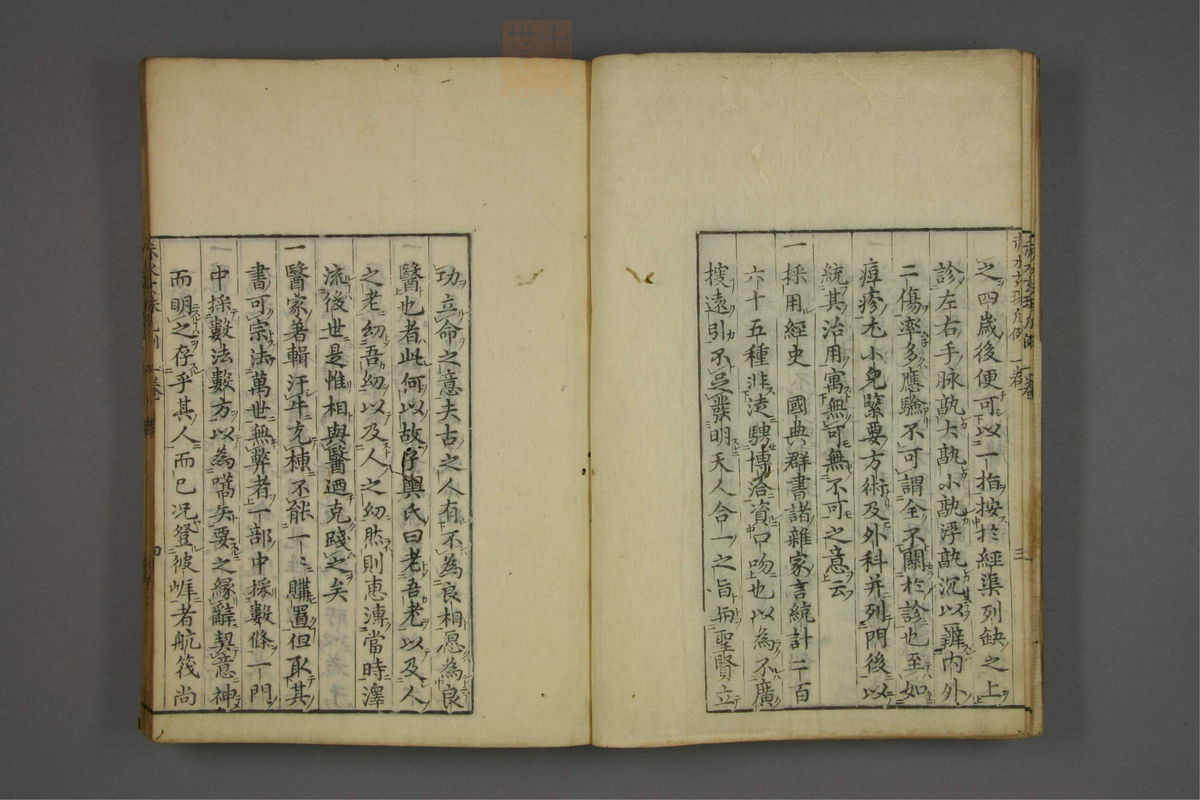 之四歲後便可以一指按於經渠列缺之上
診左右手脉孰大孰小孰浮孰沉以辨內外
二傷率多應驗不可謂全不關於診也至如
痘疹尤小兒緊要方術及外科并列門後以
統其治用寓無可無不可之意云
一採用經史　國典群書諸雜家言統計二百
六十五種非淩騁博洽資口吻也以為不廣
搜遠引不足發明天人合一之旨與聖賢立
功立命之意夫古之人有不為良相愿為良
醫也者此何以故子輿氏曰老吾老以及人
之老幼吾幼以及人之幼然則惠溥當時澤
流後世是惟相與醫迺克踐之矣
一醫家著輯汗牛充棟不能一二購置但取其
書可宗法萬世無弊者一部中採數條一門
中採數法數方以為嚆矢要之緣辭契意神
而明之存乎其人而已况登彼崕者航筏尚